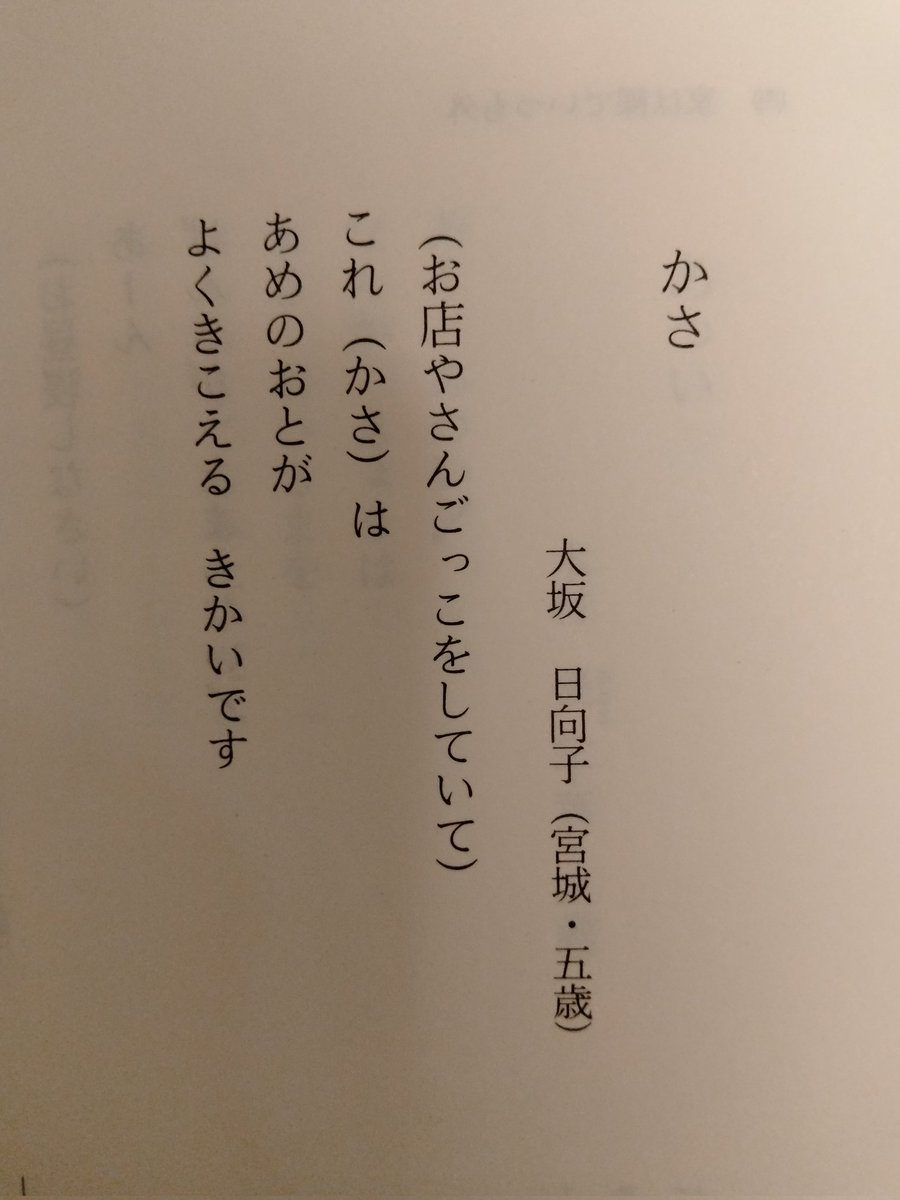 かさ
大坂 日向子（宮城・五歳）
（お店やさんごっこをしていて）
これ（かさ）は
あめのおとが
よくきこえる きかいです